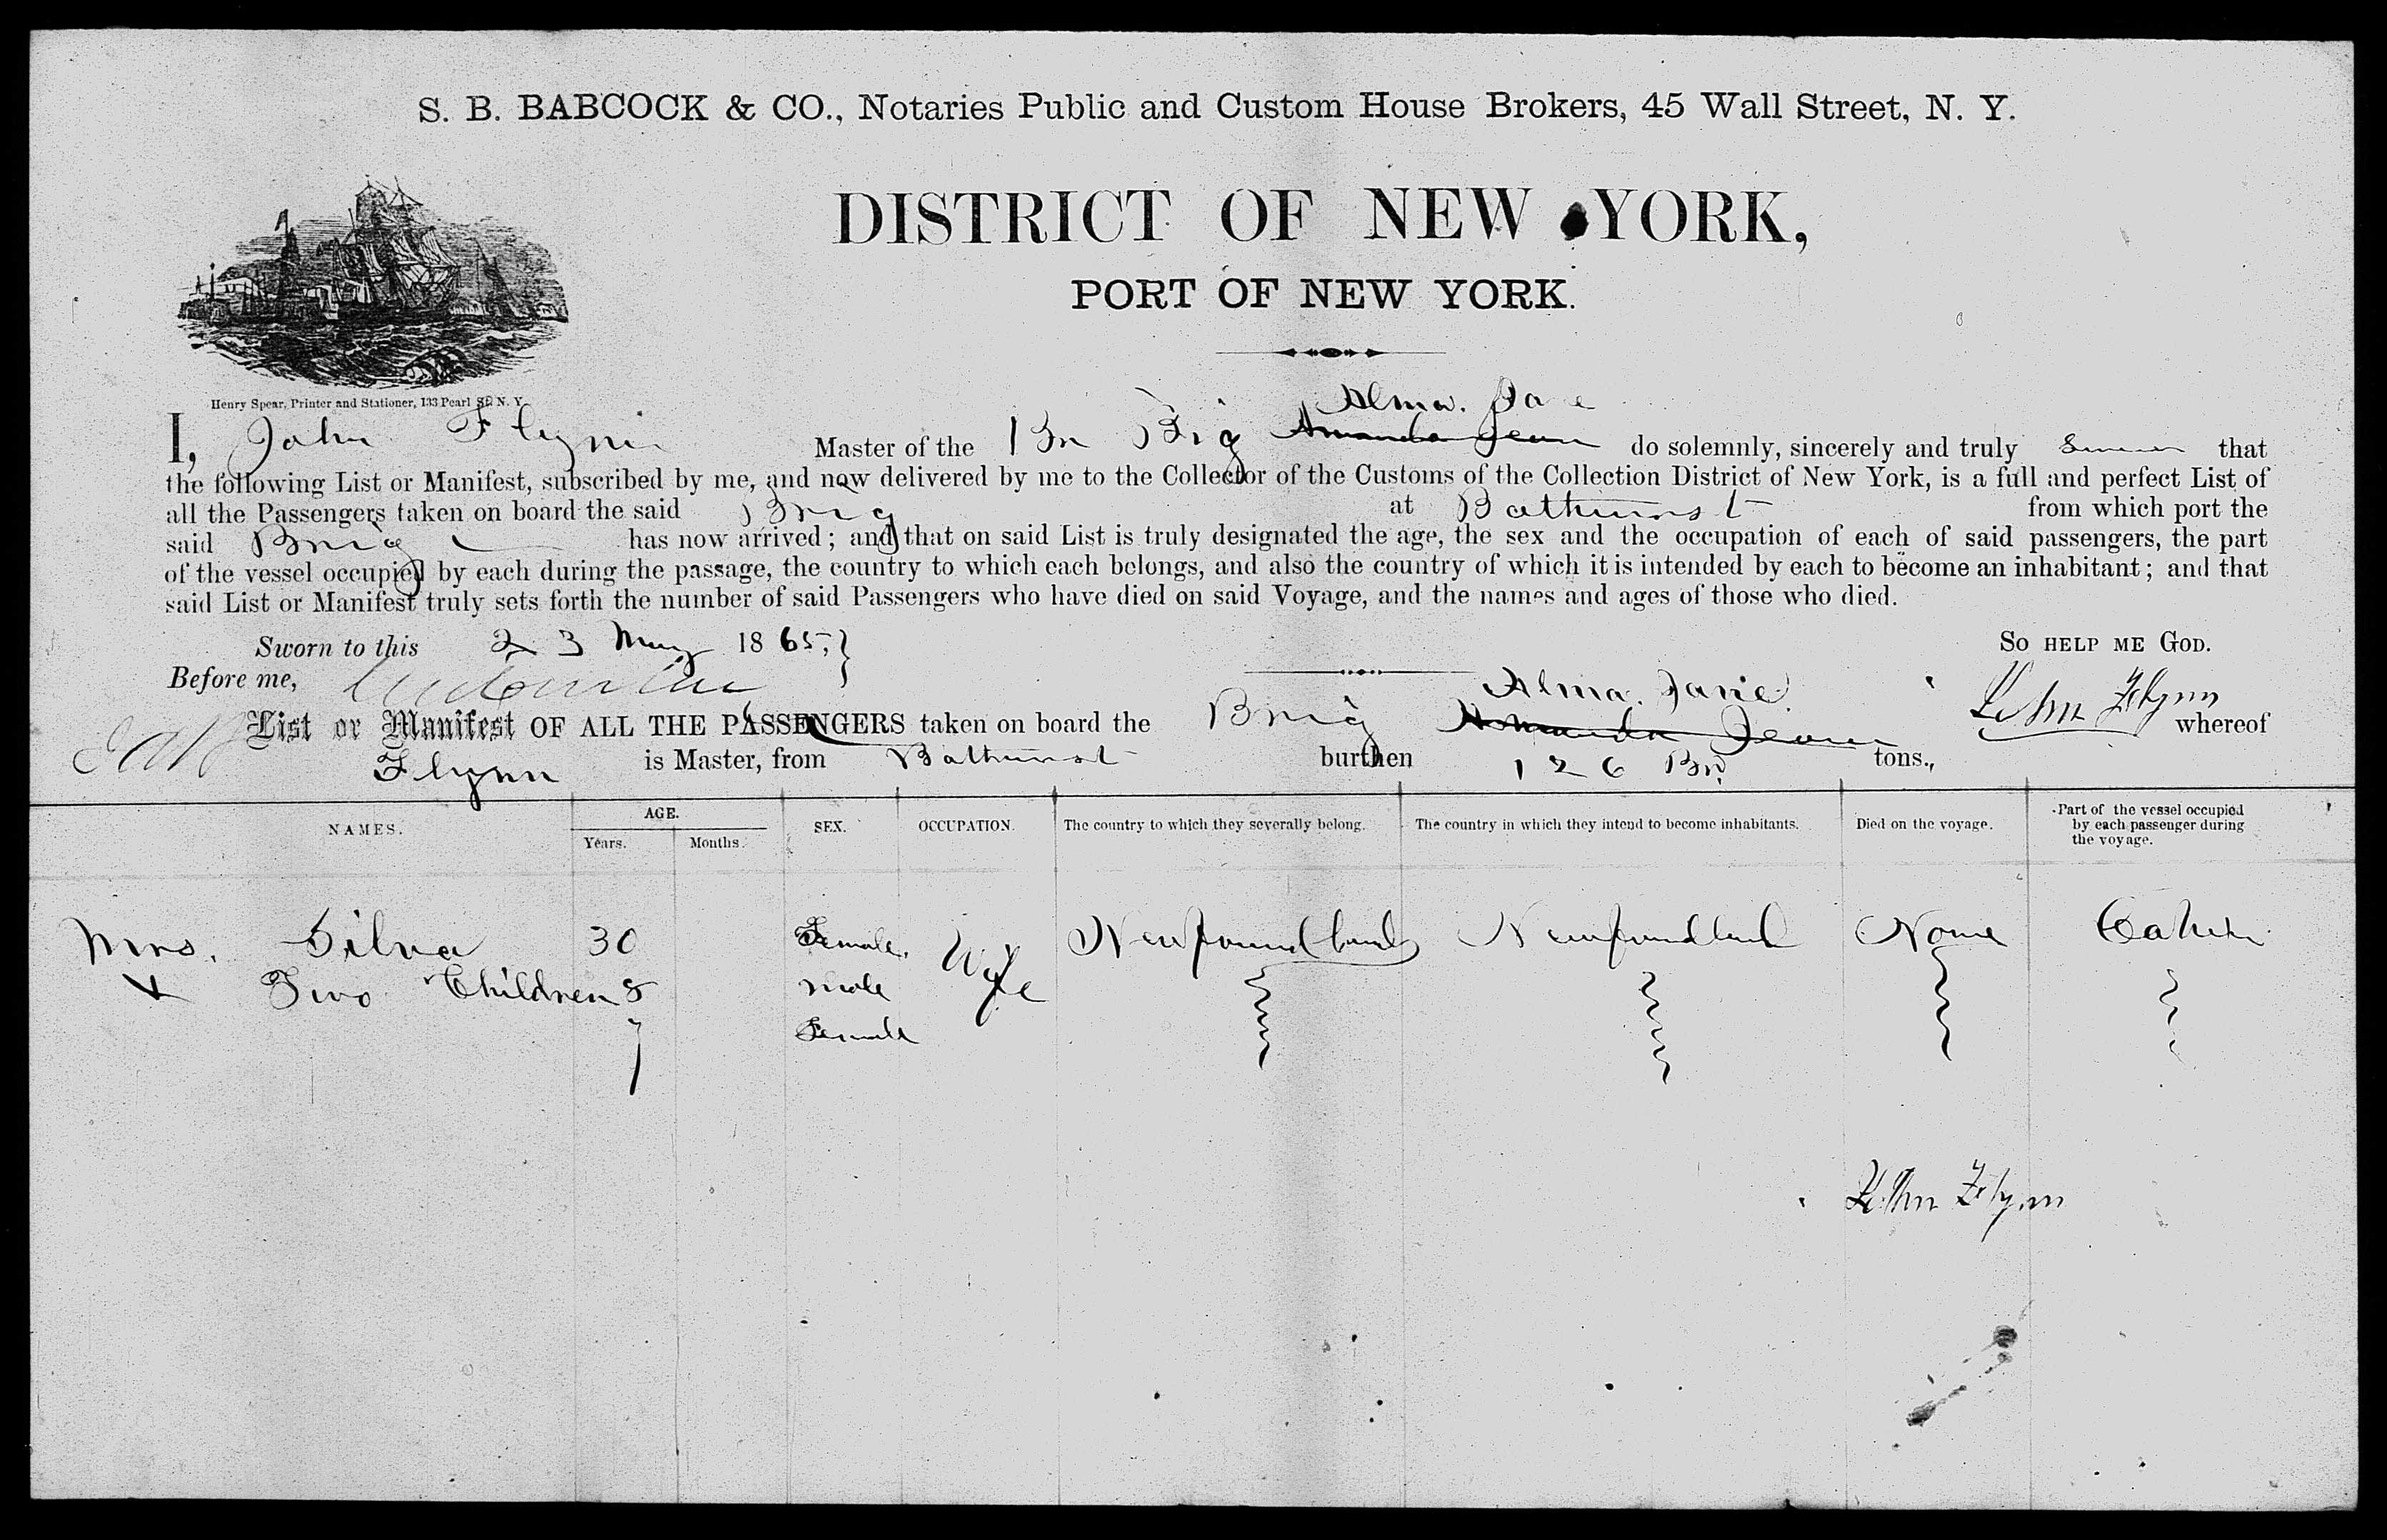 S. B. BABCOCK & CO., Notaries Public and Custom House Brokers, 45 Wall Street, N. Y.
DISTRICT OF NEW YORK,
PORT OF NEW YORK.
Henry Spear, Printer and Stationer, 133 Pearl St. N. Y.
Alma. Jane
I, John Flynn Master of the Br Brig Amanda Jean do solemnly, sincerely and truly Swear that
the following List or Manifest, subscribed by me, and now delivered by me to the Collector of the Customs of the Collection District of New York, is a full and perfect List of
all the Passengers taken on board the said Brig at Bathurst from which port the
said Brig has now arrived; and that on said List is truly designated the age, the sex and the occupation of each of said passengers, the part
of the vessel occupied by each during the passage, the country to which each belongs, and also the country of which it is intended by each to become an inhabitant; and that
said List or Manifest truly sets forth the number of said Passengers who have died on said Voyage, and the names and ages of those who died.
Sworn to this 23 May 1865, SO HELP ME GOD.
Before me,
Alma. Jane John Flynn
List or Manifest OF ALL THE PASSENGERS taken on board the Brig Amanda Jean whereof
Flynn is Master, from Bathurst burthen 126 Br. tons.,
NAMES. AGE. SEX. OCCUPATION. The country to which they severally belong. The country in which they intend to become inhabitants. Died on the voyage. Part of the vessel occupied by each passenger during the voyage.
Years. Months.
Mrs. Silva 30 Female. Wife Newfoundland Newfundland None Cabin
Two Children 8 male
7 Female
John Flynn